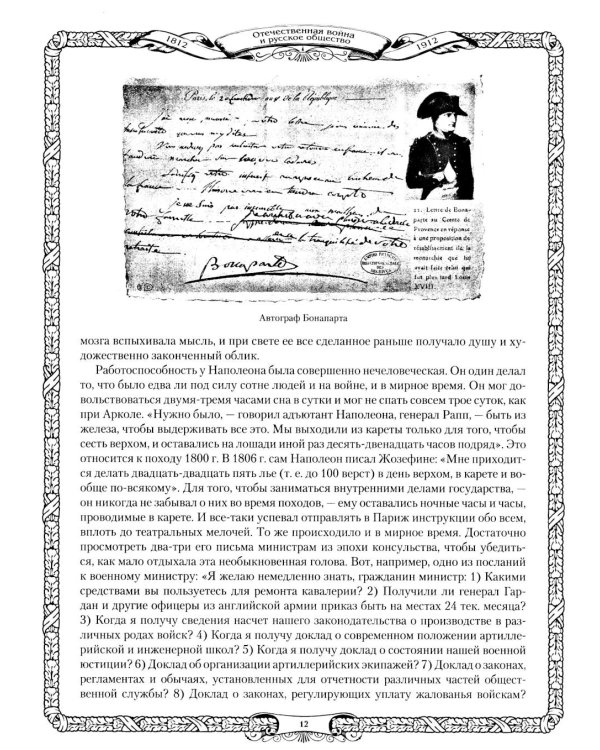 1812
Отечественная война
и русское общество
1912
Paris, le 20 de la République
Bonaparte
22. Lettre de Bona-
parte au Comte de
Provence en réponse
à une proposition de
rétablissement de la
monarchie que lui
avait faite celui qui
fut plus tard Louis
XVIII.
Автограф Бонапарта
мозга вспыхивала мысль, и при свете ее все сделанное раньше получало душу и ху-
дожественно законченный облик.
Работоспособность у Наполеона была совершенно нечеловеческая. Он один делал
то, что было едва ли под силу сотне людей и на войне, и в мирное время. Он мог до-
вольствоваться двумя-тремя часами сна в сутки и мог не спать совсем трое суток, как
при Арколе. «Нужно было, — говорил адъютант Наполеона, генерал Рапп, — быть из
железа, чтобы выдерживать все это. Мы выходили из кареты только для того, чтобы
сесть верхом, и оставались на лошади иной раз десять-двенадцать часов подряд». Это
относится к походу 1800 г. В 1806 г. сам Наполеон писал Жозефине: «Мне приходит-
ся делать двадцать-двадцать пять лье (т. е. до 100 верст) в день верхом, в карете и во-
обще по-всякому». Для того, чтобы заниматься внутренними делами государства, —
он никогда не забывал о них во время походов, — ему оставались ночные часы и часы,
проводимые в карете. И все-таки успевал отправлять в Париж инструкции обо всем,
вплоть до театральных мелочей. То же происходило и в мирное время. Достаточно
просмотреть два-три его письма министрам из эпохи консульства, чтобы убедить-
ся, как мало отдыхала эта необыкновенная голова. Вот, например, одно из посланий
к военному министру: «Я желаю немедленно знать, гражданин министр: 1) Какими
средствами вы пользуетесь для ремонта кавалерии? 2) Получили ли генерал Гар-
дан и другие офицеры из английской армии приказ быть на местах 24 тек. месяца?
3) Когда я получу сведения насчет нашего законодательства о производстве в раз-
личных родах войск? 4) Когда я получу доклад о современном положении артилле-
рийской и инженерной школ? 5) Когда я получу доклад о состоянии нашей военной
юстиции? 6) Доклад об организации артиллерийских экипажей? 7) Доклад о законах,
регламентах и обычаях, установленных для отчетности различных частей общест-
венной службы? 8) Доклад о законах, регулирующих уплату жалованья войскам?
12